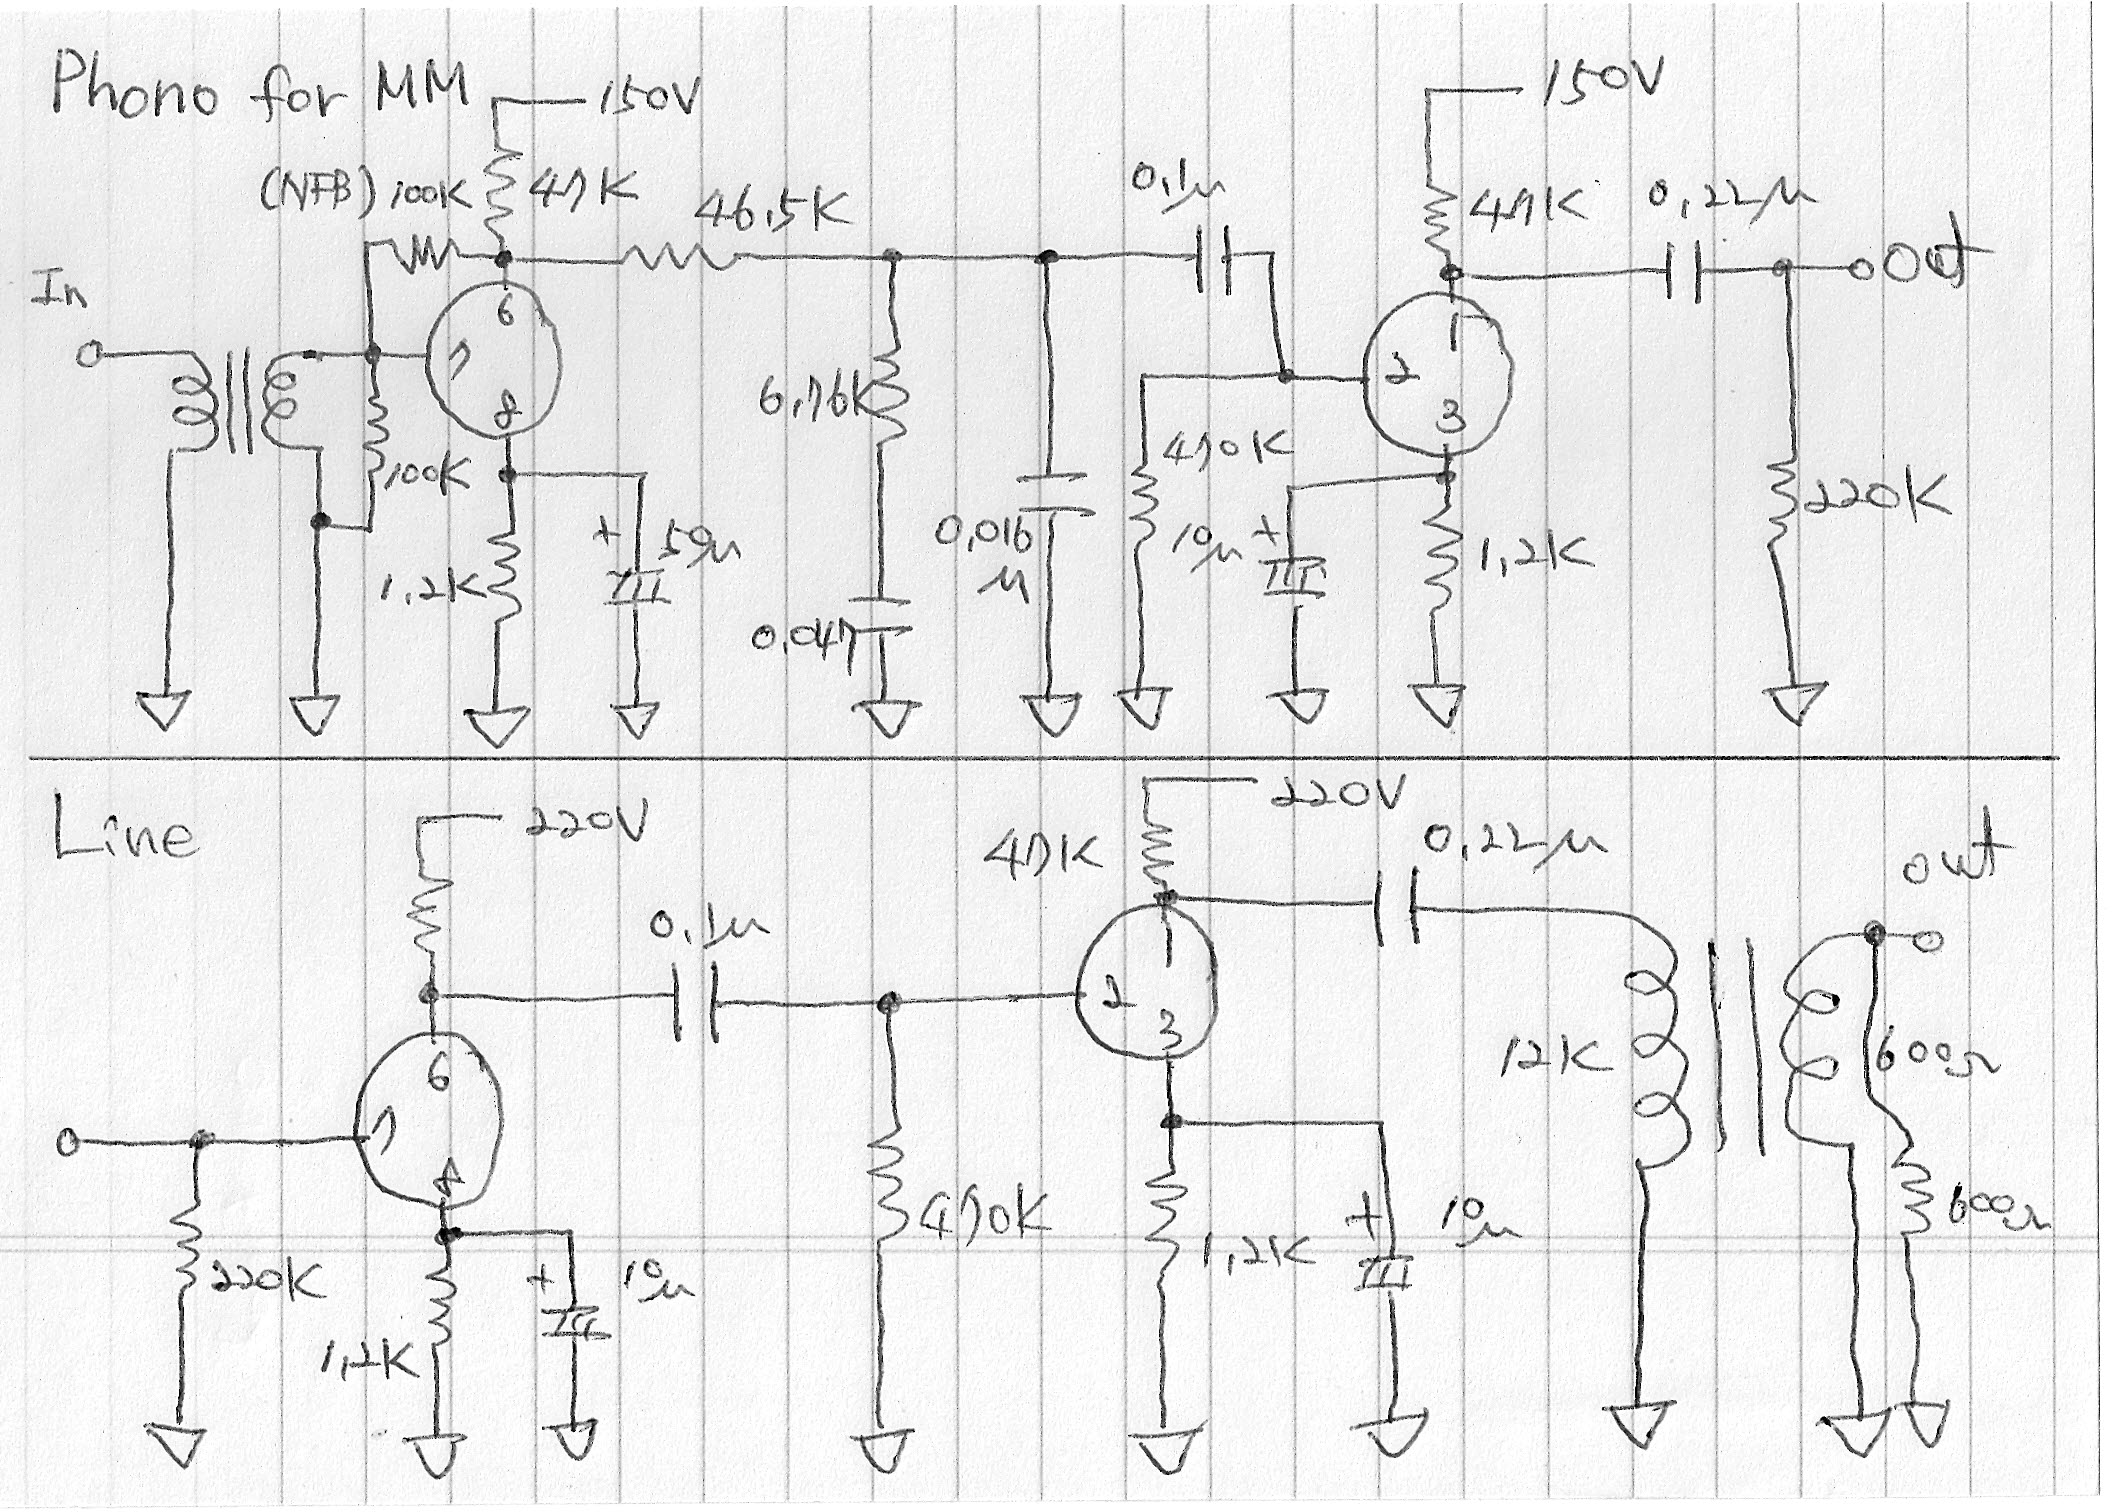 Phono for MM
150V
150V
(NFB) 100K
47K
46.5K
0.1μ
47K
0.22μ
Out
In
6
7
8
100K
1.2K
+
50μ
6.76K
0.047
0.016
μ
470K
10μ
+
1
2
3
1.2K
220K
Line
220V
220V
47K
0.22μ
out
0.1μ
6
7
220K
1.2K
+
10μ
470K
1
2
3
1.2K
+
10μ
12K
600Ω
600Ω